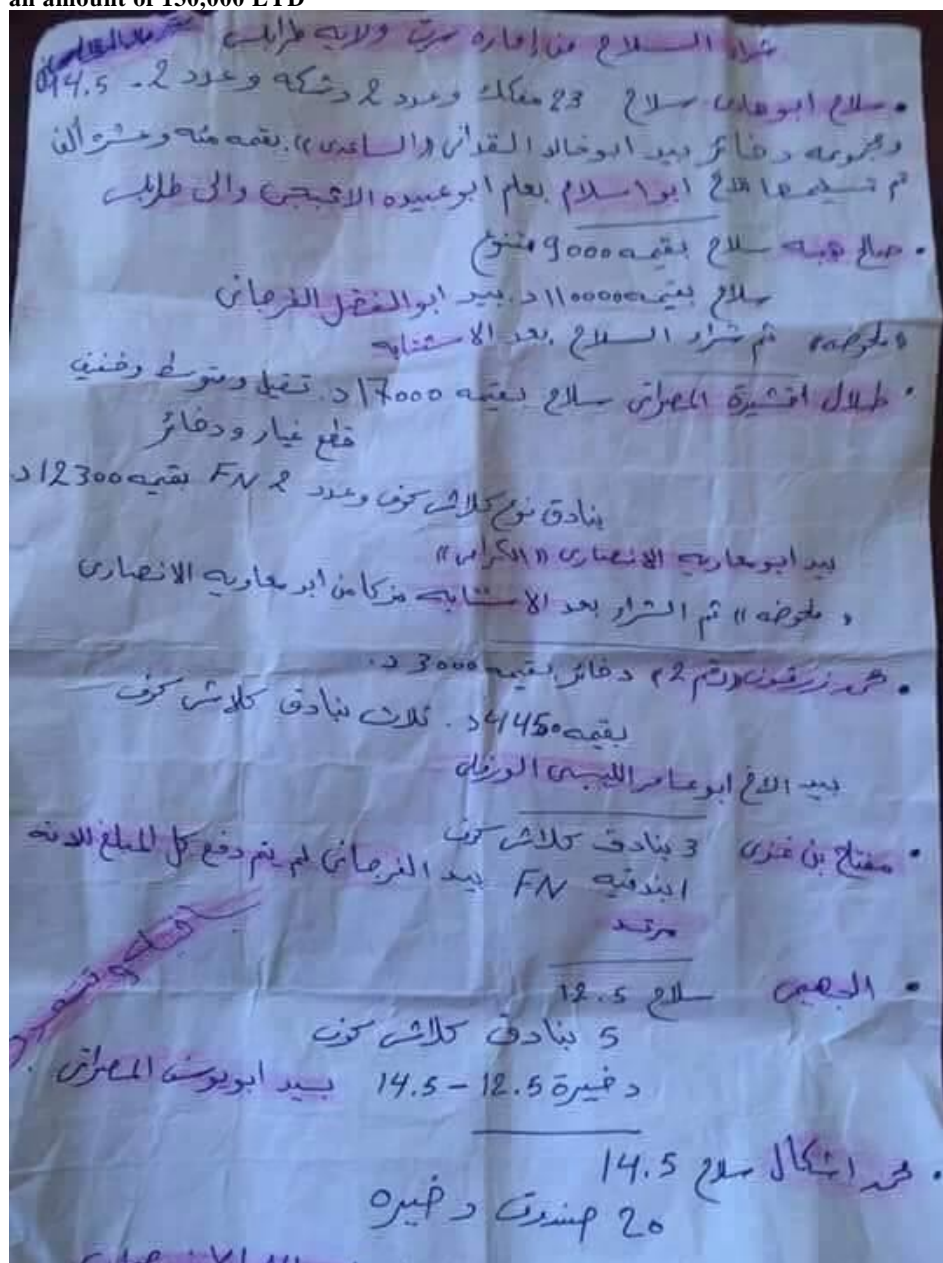 an amount of 150,000 LYD
شراء السلاح من إمارة سرت ولاية طرابلس
• سلاح ابوهادى سلاح 23 مفكك وعدد 2 دشكه وعدد 2 - 14.5
ومجموعه دخائر بيد ابوخالد القدافى (الساعدى) بقيمه مئه وعشر ألف
تم تسليمها للاخ ابو اسلام بعلم ابوعبيده والى طرابلس
• صالح هيبه سلاح بقيمه 9000 متنوع
سلاح بقيمه 1100000 د. بيد ابوالفضل الفرجانى
«ملحوضه» تم شراء السلاح بعد الاستتابه
• طلال المصراتى سلاح بقيمه 17000 د. تقيل ومتوسط وخفيف
قطع غيار ودخائر
بنادق نوع كلاش كوف وعدد 2 FN بقيمه 12300 د
بيد ابومعاويه الانصارى «الكرامى»
«ملحوضه» تم الشراء بعد الاستتابه مزكا من ابو معاويه الانصارى
• محمد زرقون (رقم 2) دخائر بقيمه 3000 د.
بقيمه 4450 د. تلات بنادق كلاش كوف
بيد الاخ ابوعامر الورفلى
• مفتاح بن غزى 3 بنادق كلاش كوف
1 بندقيه FN بيد الفرجانى لم يتم دفع كل المبلغ لانه
مرتد
• سلاح 12.5
5 بنادق كلاش كوف
دخيرة 12.5 - 14.5 بيد ابويوسف المصراتى
• محمد اشكال سلاح 14.5
20 صندوق دخيره